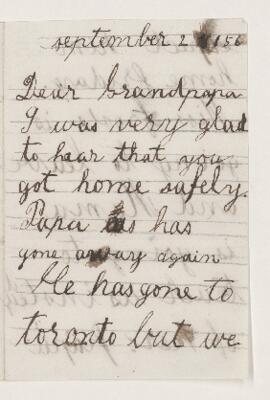 september 2 156
Dear Grandpapa
I was very glad
to hear that you
got home safely.
Papa has
gone away again
He has gone to
toronto but we